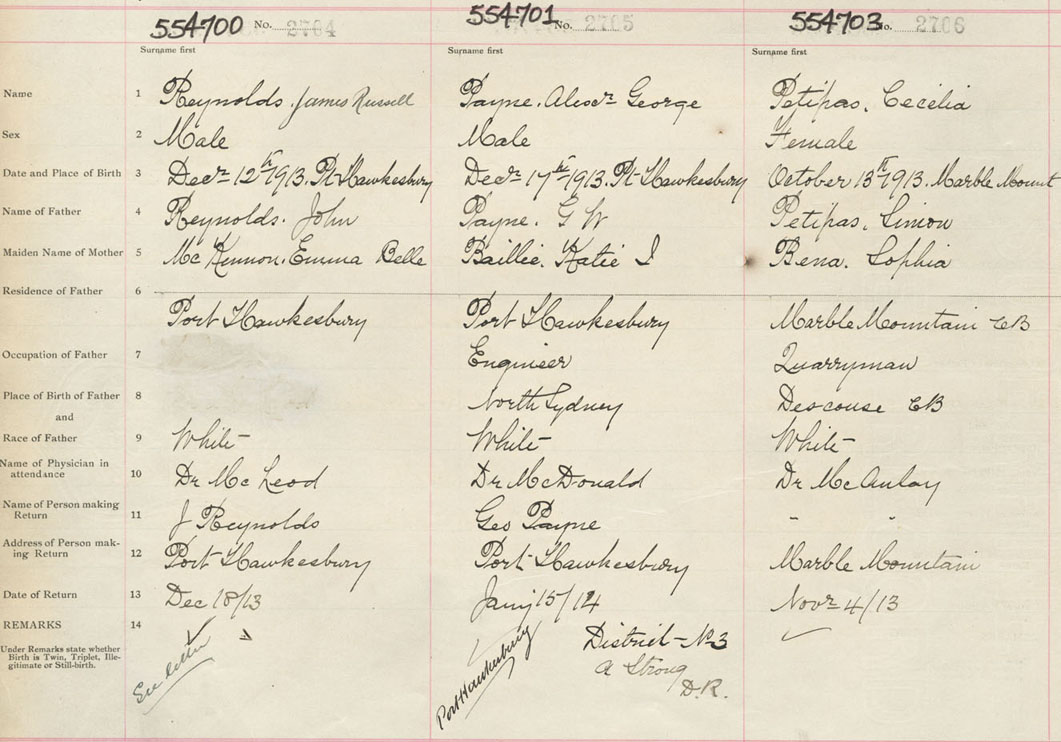 554700 No. 2704 554701 No. 2705 554703 No. 2706
Surname first Surname first Surname first
Name 1 Reynolds. James Russell Payne. Alexdr George Petipas. Cecelia
Sex 2 Male Male Female
Date and Place of Birth 3 Decr 12th 1913. Pt Hawkesbury Decr 17th 1913. Pt Hawkesbury October 13th 1913. Marble Mount
Name of Father 4 Reynolds. John Payne. G W Petipas. Simon
Maiden Name of Mother 5 Mc Kinnon. Emma Belle Baillie. Katie I Bena. Sophia
Residence of Father 6
Port Hawkesbury Port Hawkesbury Marble Mountain CB
Occupation of Father 7 Engineer Quarryman
Place of Birth of Father 8 North Sydney Descouse CB
and
Race of Father 9 White White White
Name of Physician in
attendance 10 Dr Mc Leod Dr McDonald Dr McAulay
Name of Person making
Return 11 J Reynolds Geo Payne " "
Address of Person mak-
ing Return 12 Port Hawkesbury Port Hawkesbury Marble Mountain
Date of Return 13 Dec 18/13 Jany 15/14 Novr 4/13
REMARKS 14 District No 3
Under Remarks state whether
Birth is Twin, Triplet, Ille-
gitimate or Still-birth.
See letter Port Hawkesbury A Strong
D.R.